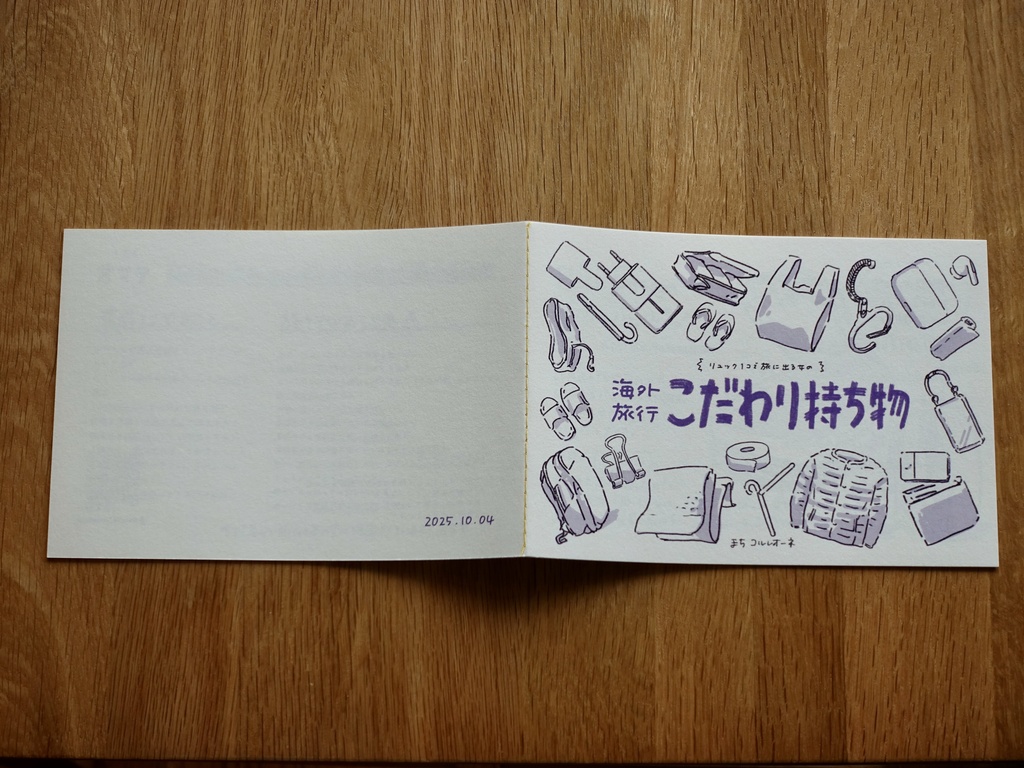 リュック1コで旅に出る女の
海外
旅行
こだわり持ち物
まち コルレオーネ
2025.10.04